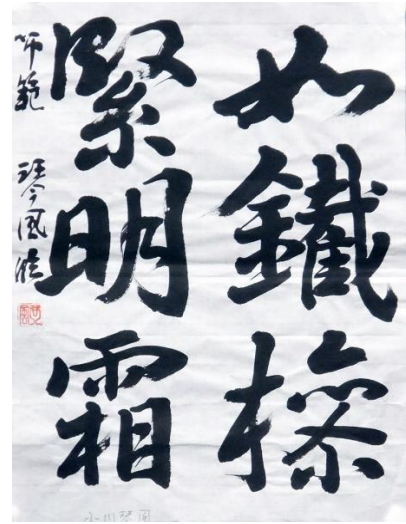 如鐵操
緊明霜
師範 琴風臨
小川琴風